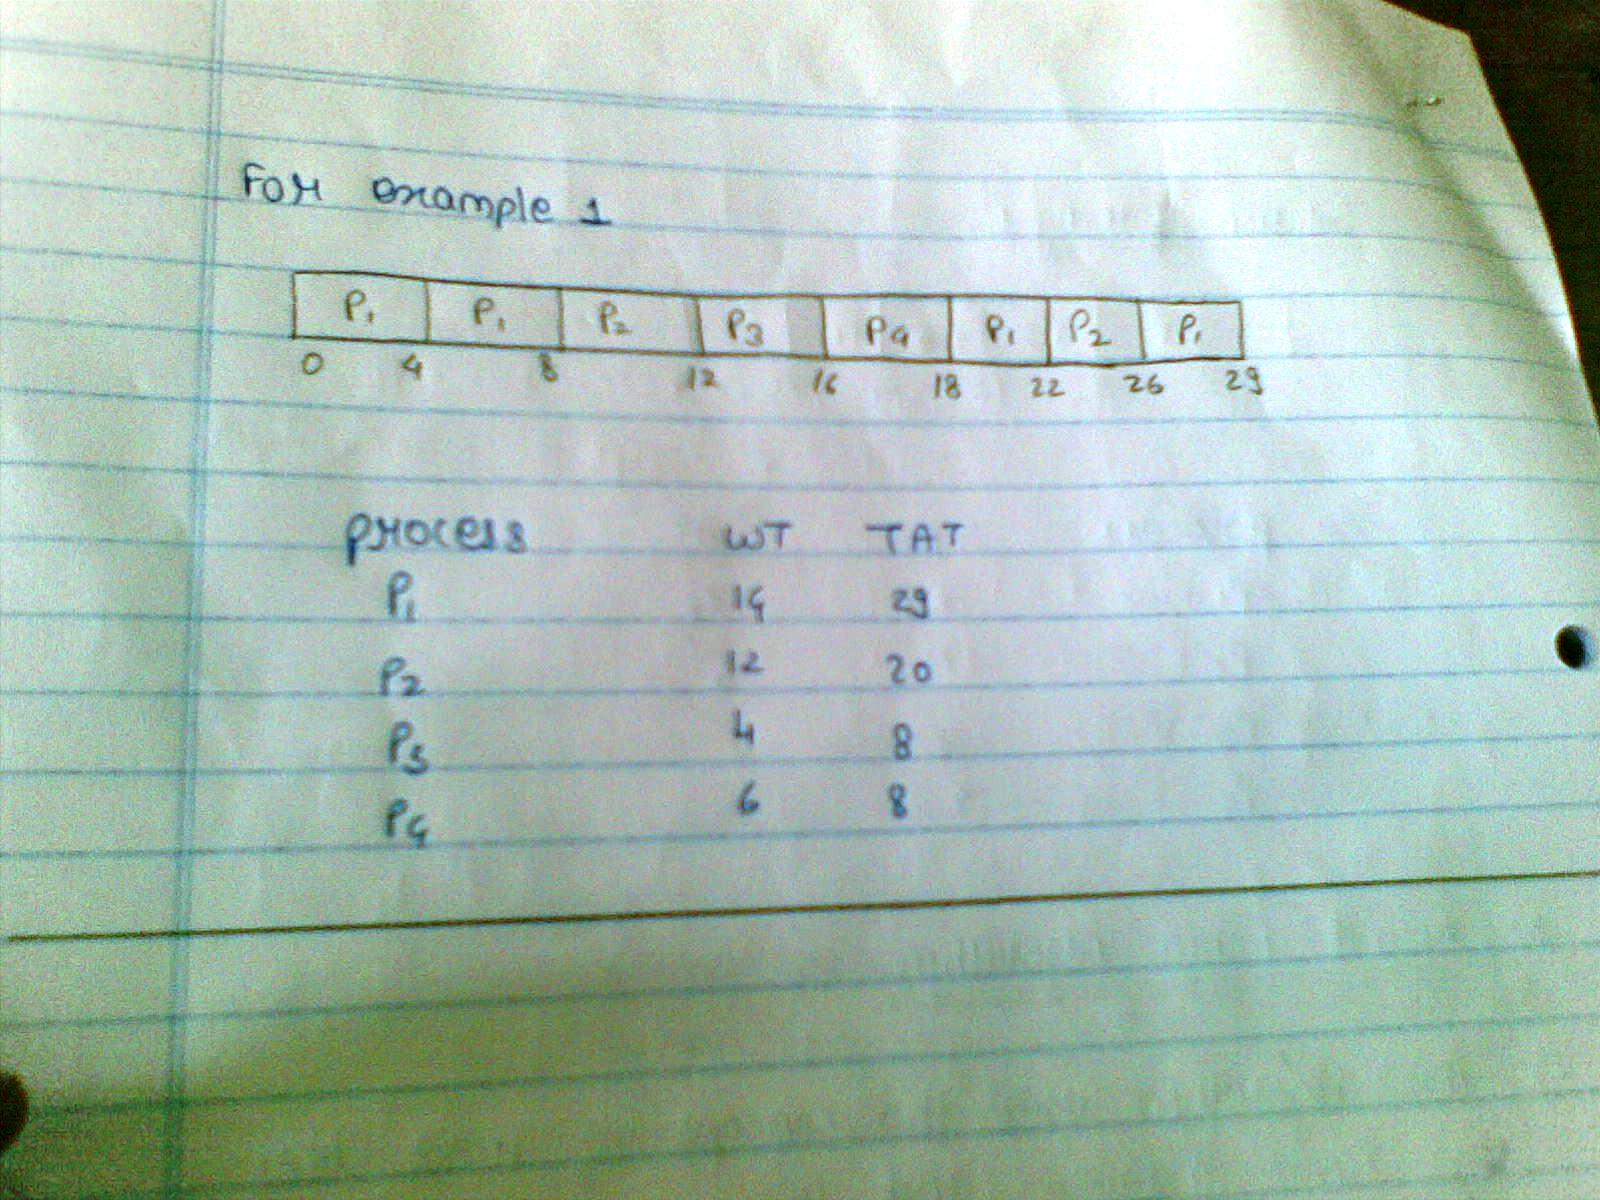 For example 1
P1 P1 P2 P3 P4 P1 P2 P1
0 4 8 12 16 18 22 26 29
process WT TAT
P1 14 29
P2 12 20
P3 4 8
P4 6 8